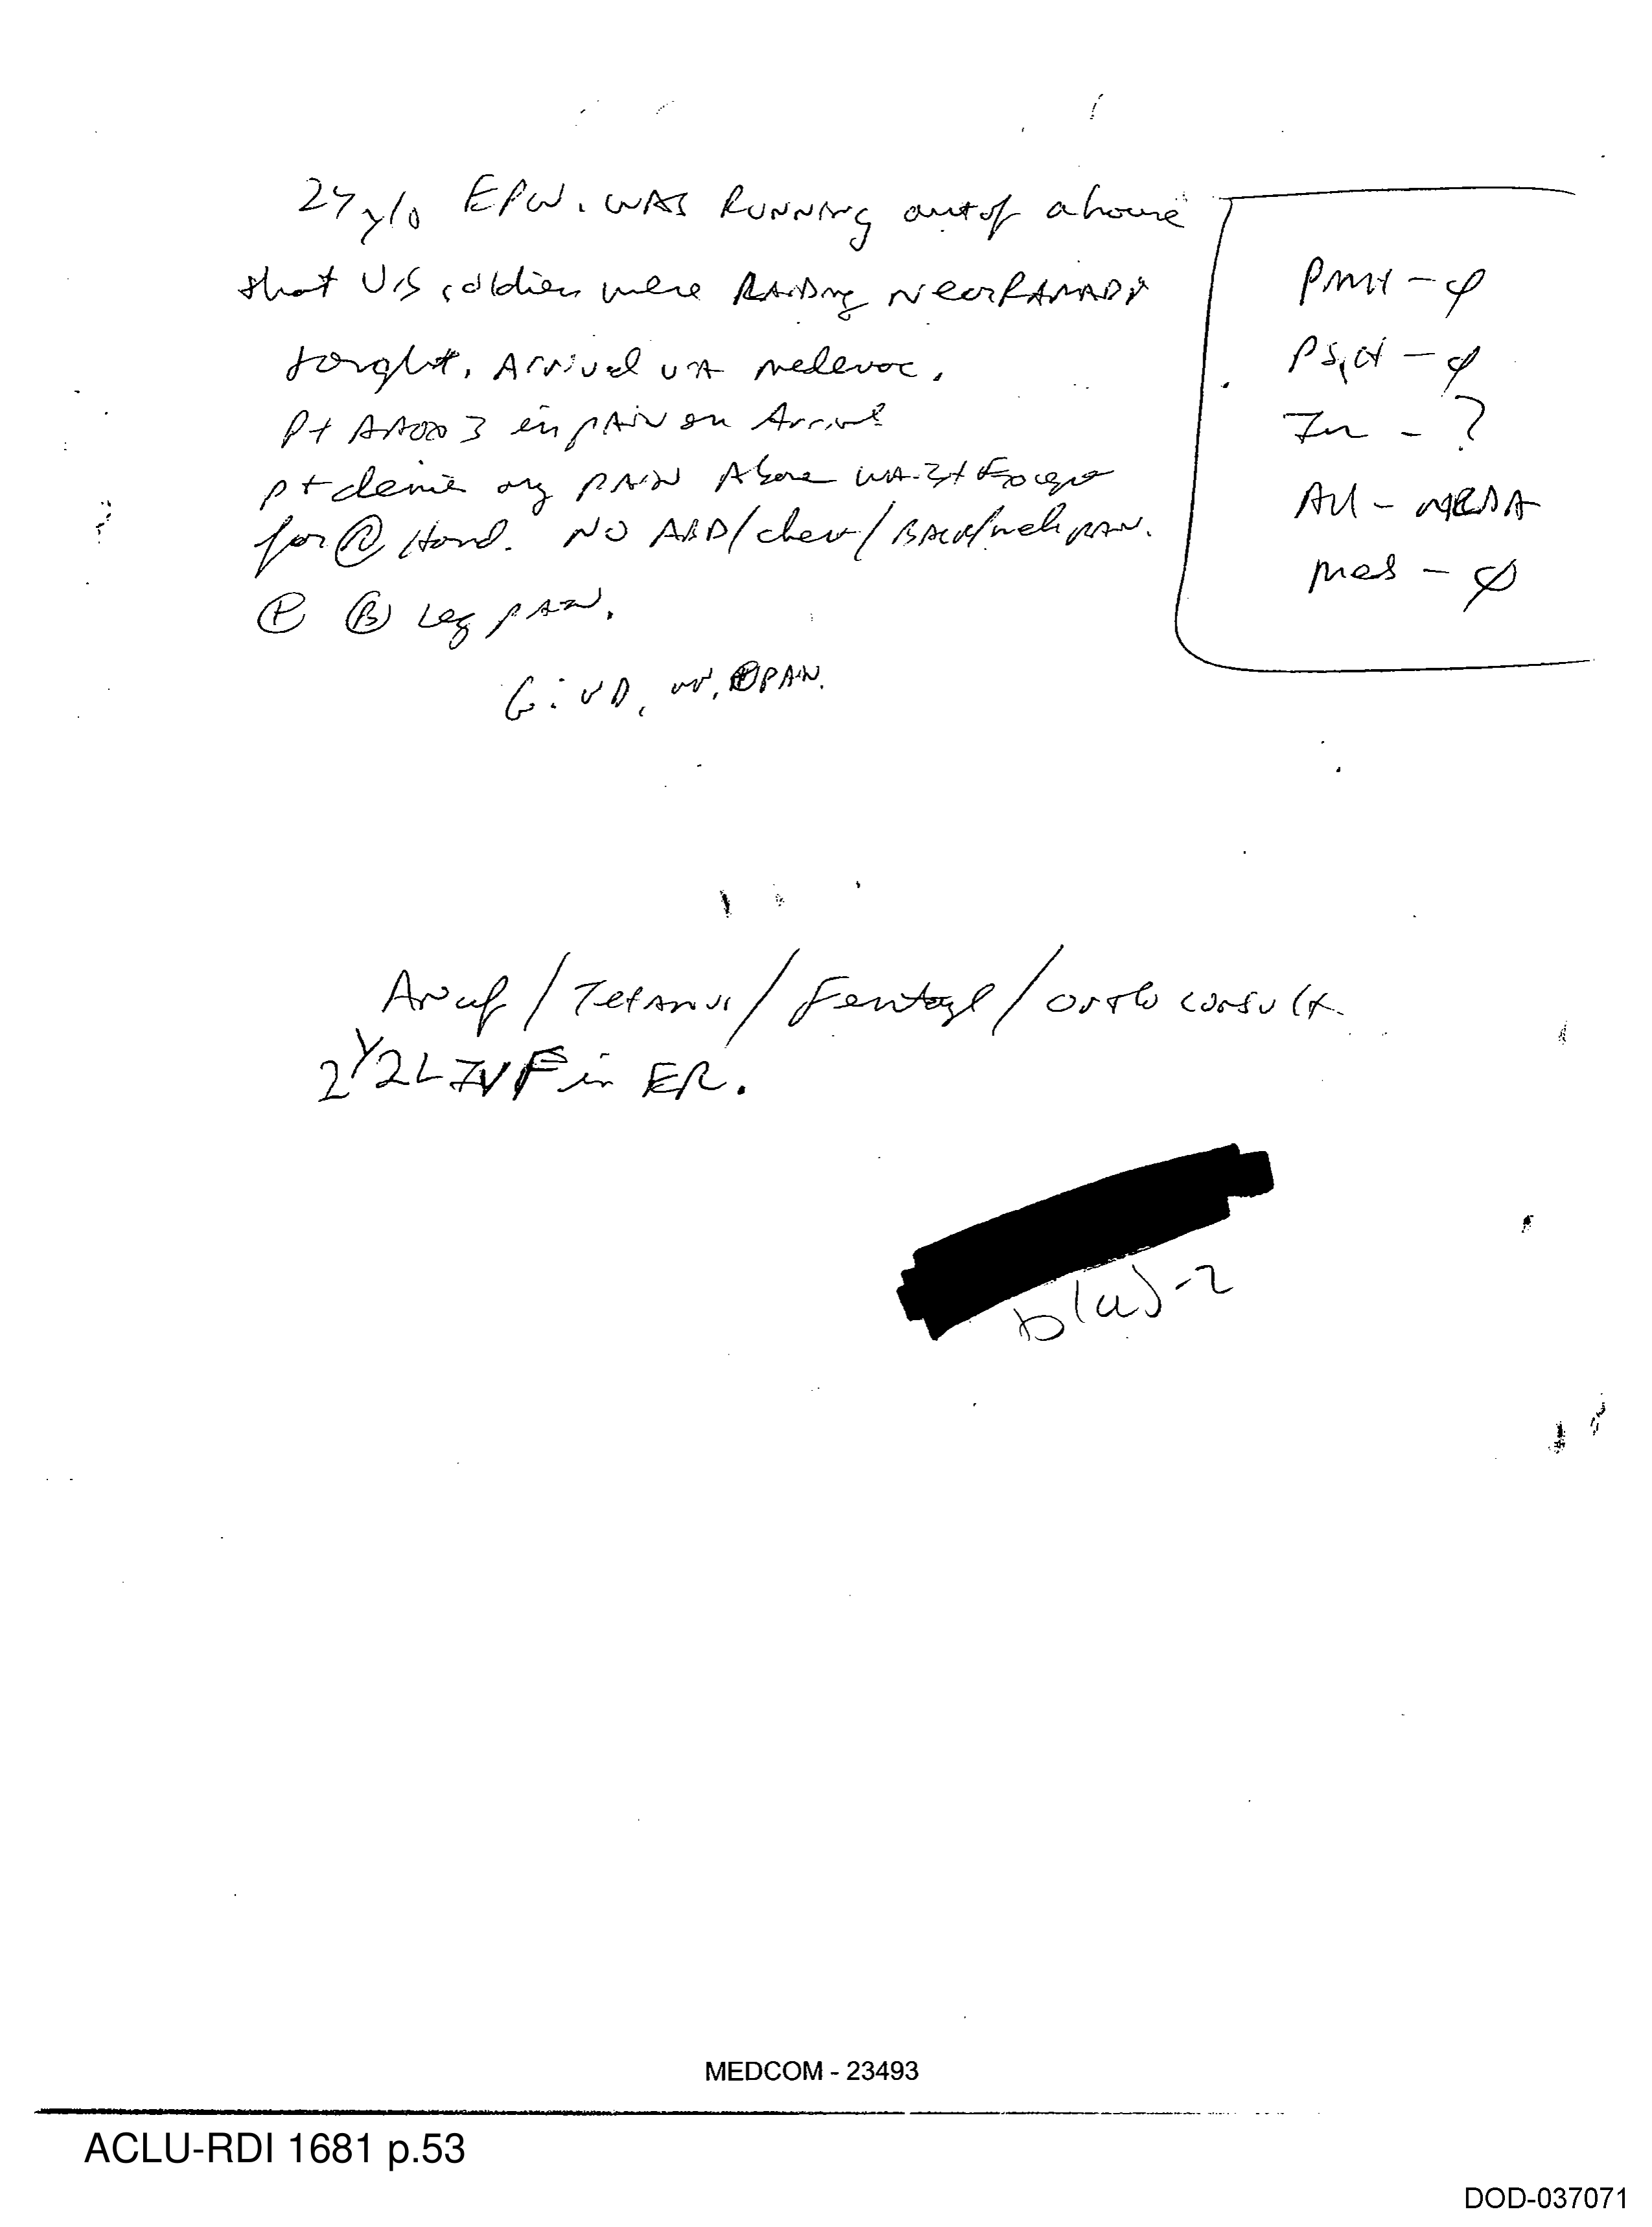 24 y/o EPW. WAS RUNNING out of a house
that U.S soldiers were RAIDing Near RAMADI
tonight. Arrival VIA medevac.
Pt AAOx3 in PAIN on Arrival
pt denies any PAIN Above WAist Except
for Ⓡ Hand. NO ABD/chest/BACK/neck PAIN.
Ⓑ Leg PAIN.
PMH - φ
PSH - φ
Im - ?
All - NKDA
Meds - φ
Ancef / Tetanus / Fentanyl / ortho consult.
2 1/2 L IVF in ER.
b(6)-2
MEDCOM - 23493
ACLU-RDI 1681 p.53
DOD-037071